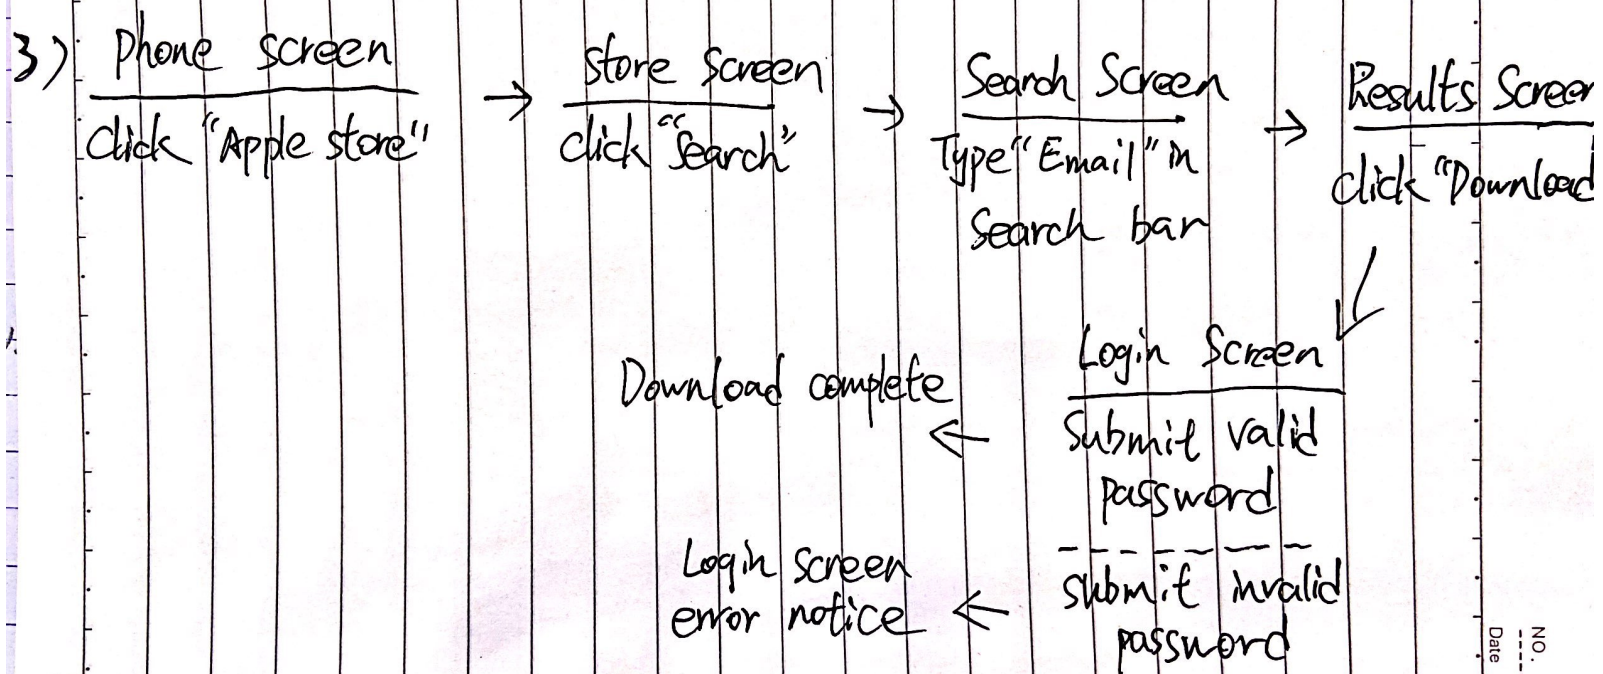 3)
Phone screen
click "Apple store"
→
store screen
click "Search"
→
Search Screen
Type "Email" in
Search bar
→
Results Screen
click "Download
Login Screen
Submit valid
password
←
Download complete
submit invalid
password
←
Login screen
error notice
NO.
Date